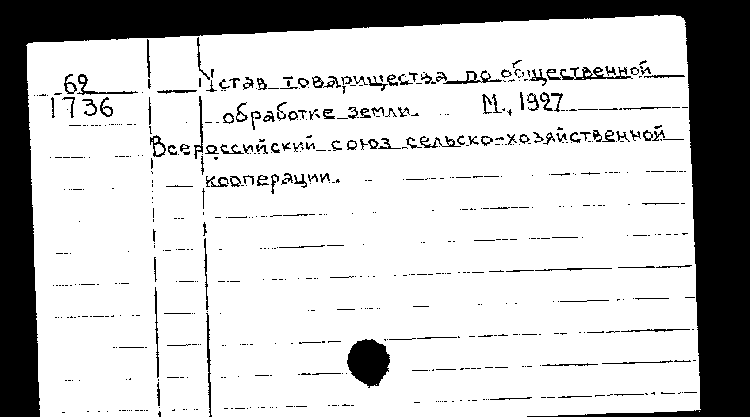 62
1736
Устав товарищества по общественной
обработке земли. М., 1927
Всероссийский союз сельско-хозяйственной
кооперации.